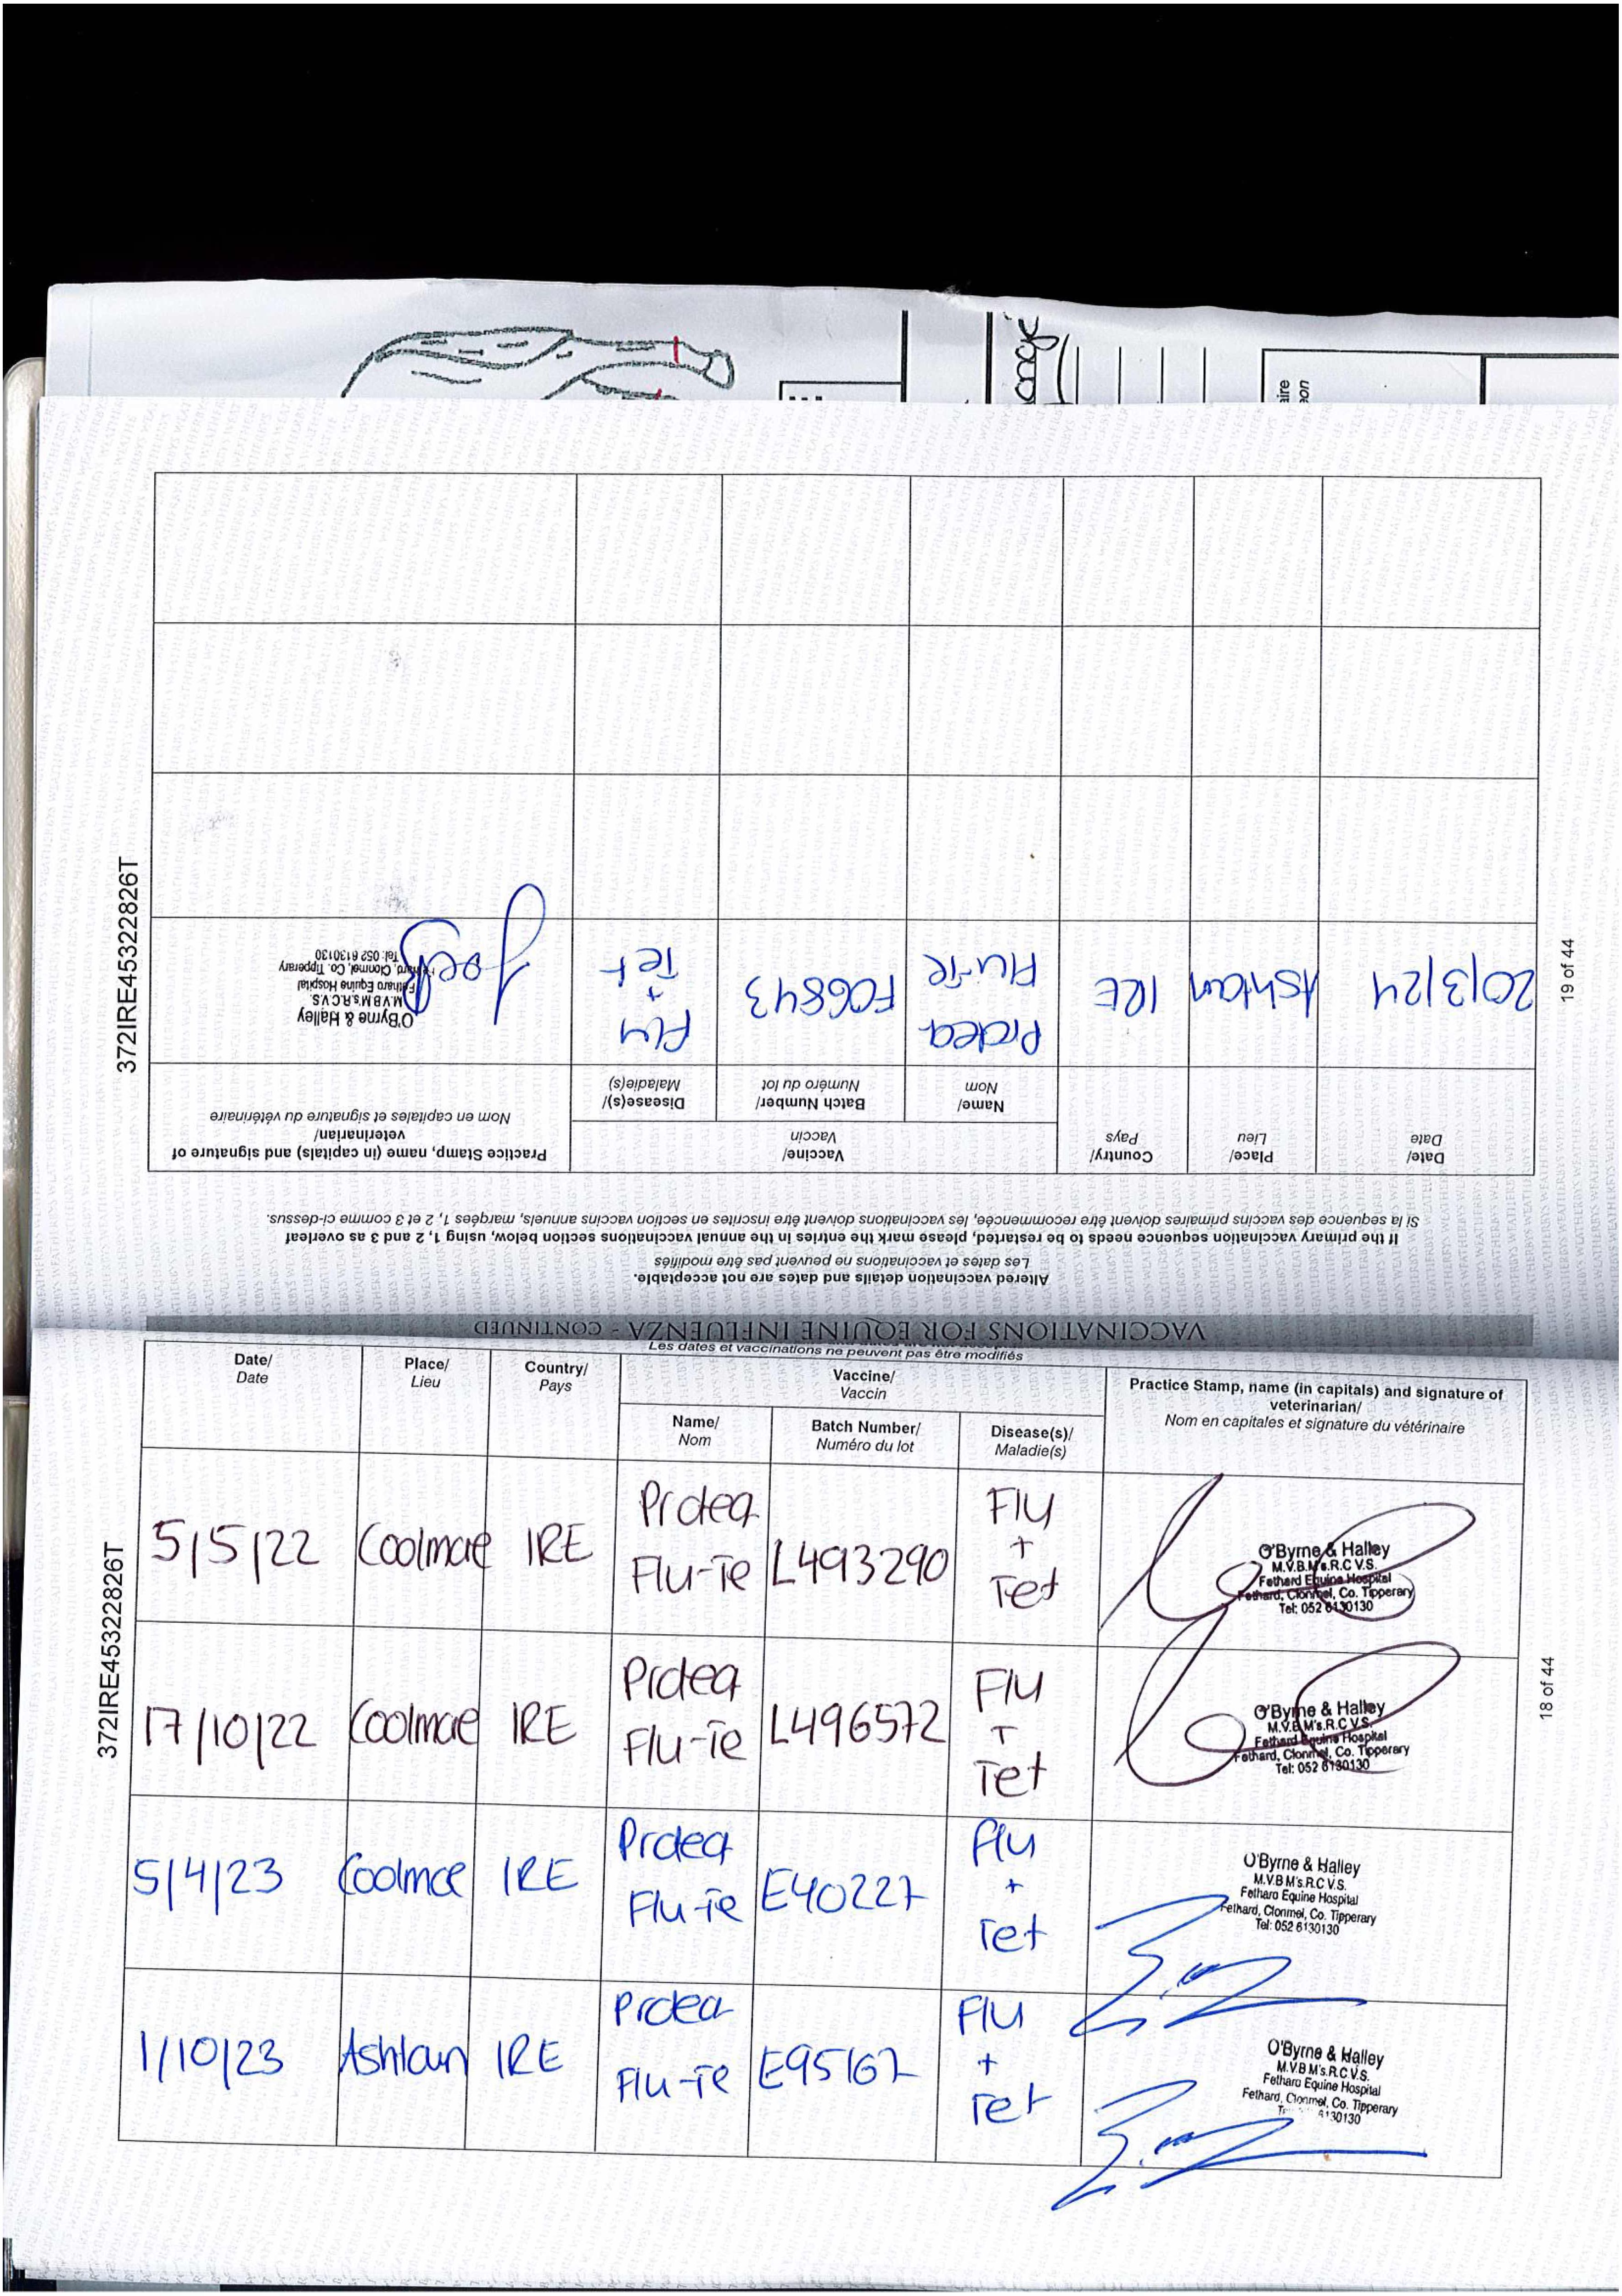 ange
aire
eon
372IRE45322826T
19 of 44
VACCINATIONS FOR EQUINE INFLUENZA - CONTINUED
Altered vaccination details and dates are not acceptable.
Les dates et vaccinations ne peuvent pas être modifiés
If the primary vaccination sequence needs to be restarted, please mark the entries in the annual vaccinations section below, using 1, 2 and 3 as overleaf
Si la sequence des vaccins primaires doivent être recommencée, les vaccinations doivent être inscrites en section vaccins annuels, marqées 1, 2 et 3 comme ci-dessus.
Date/
Date
Place/
Lieu
Country/
Pays
Vaccine/
Vaccin
Name/
Nom
Batch Number/
Numéro du lot
Disease(s)/
Maladie(s)
Practice Stamp, name (in capitals) and signature of
veterinarian/
Nom en capitales et signature du vétérinaire
20/3/24 Ashtan IRE Proteq Flu-Te F06843 Flu + Tet
O'Byrne & Halley
M.V.B M's.R.C.V.S.
Fethard Equine Hospital
Fethard, Clonmel, Co. Tipperary
Tel: 052 6130130
Les dates et vaccinations ne peuvent pas être modifiés
Date/
Date
Place/
Lieu
Country/
Pays
Vaccine/
Vaccin
Name/
Nom
Batch Number/
Numéro du lot
Disease(s)/
Maladie(s)
Practice Stamp, name (in capitals) and signature of
veterinarian/
Nom en capitales et signature du vétérinaire
5/5/22 Coolmae IRE Proteq Flu-Te L493290 Flu + Tet
O'Byrne & Halley
M.V.B.M's.R.C.V.S.
Fethard Equine Hospital
Fethard, Clonmel, Co. Tipperary
Tel: 052 6130130
17/10/22 Coolmae IRE Proteq Flu-Te L496572 Flu + Tet
O'Byrne & Halley
M.V.B M's.R.C V.S.
Fethard Equine Hospital
Fethard, Clonmel, Co. Tipperary
Tel: 052 6130130
5/4/23 Coolmae IRE Proteq Flu-Te E40227 Flu + Tet
O'Byrne & Halley
M.V.B M's.R.C V.S.
Fethard Equine Hospital
Fethard, Clonmel, Co. Tipperary
Tel: 052 6130130
1/10/23 Ashtan IRE Proteq Flu-Te E95167 Flu + Tet
O'Byrne & Halley
M.V.B M's.R.C V.S.
Fethard Equine Hospital
Fethard, Clonmel, Co. Tipperary
6130130
372IRE45322826T
18 of 44